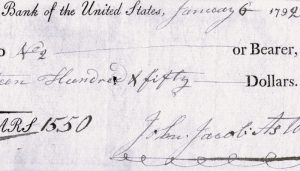 Bank of the United States, January 6 1792
o No 2 or Bearer,
een Hundred & fifty Dollars.
ARS 1550
John Jacob Ast